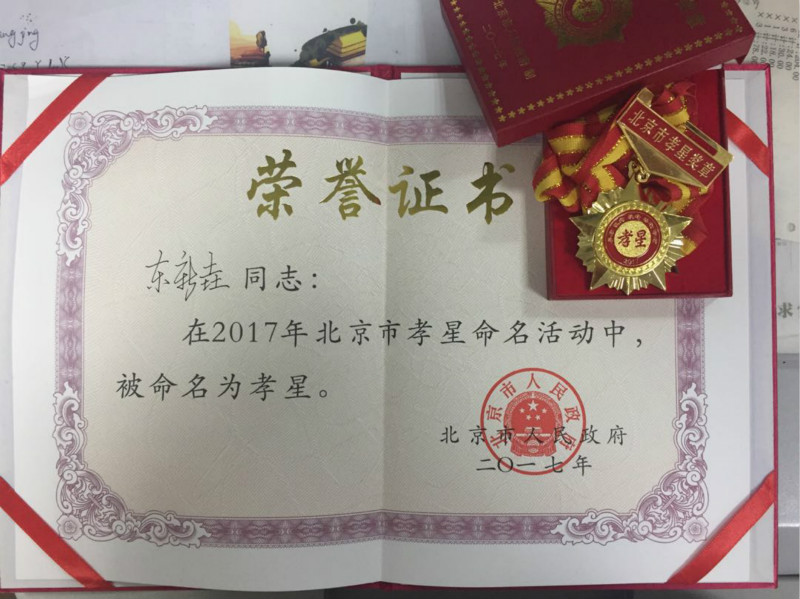 荣誉证书
同志：
在2017年北京市孝星命名活动中，
被命名为孝星。
北京市人民政府
二〇一七年
北京市人民政府
北京市孝星奖章
孝星